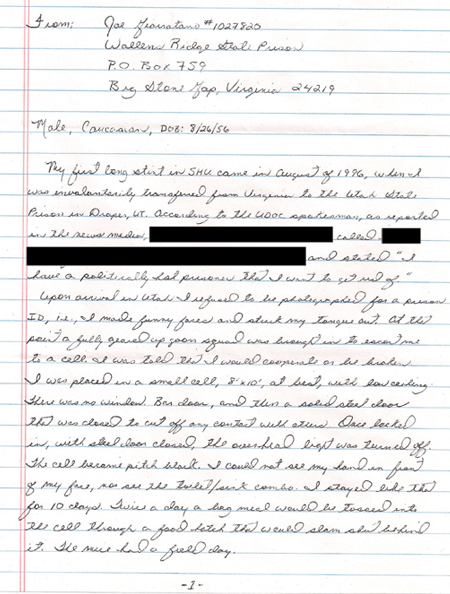 From: Joe Giarratano #1027820
Wallens Ridge State Prison
P.O. Box 759
Big Stone Gap, Virginia 24219
Male, Caucasian, DOB: 8/26/56
My first long stint in SHU came in August of 1996, when I
was involuntarily transferred from Virginia to the Utah State
Prison in Draper, UT. According to the UDOC spokesman, as reported
in the news media, called
and stated "I
have a politically hot prisoner that I want to get rid of."
Upon arrival in Utah I refused to be photographed for a prison
ID, i.e., I made funny faces and stuck my tongue out. At the
point a fully geared up goon squad was brought in to escort me
to a cell. I was told that I would cooperate or be broken.
I was placed in a small cell, 8'x10', at best, with low ceiling.
There was no window. Bar door, and then a solid steel door
that was closed to cut off any contact with others. Once locked
in, with steel door closed, the overhead light was turned off.
The cell became pitch black. I could not see my hand in front
of my face, nor see the toilet/sink combo. I stayed like that
for 10 days. Twice a day a bag meal would be tossed into
the cell through a food hatch that would slam shut behind
it. The mice had a field day.
-1-